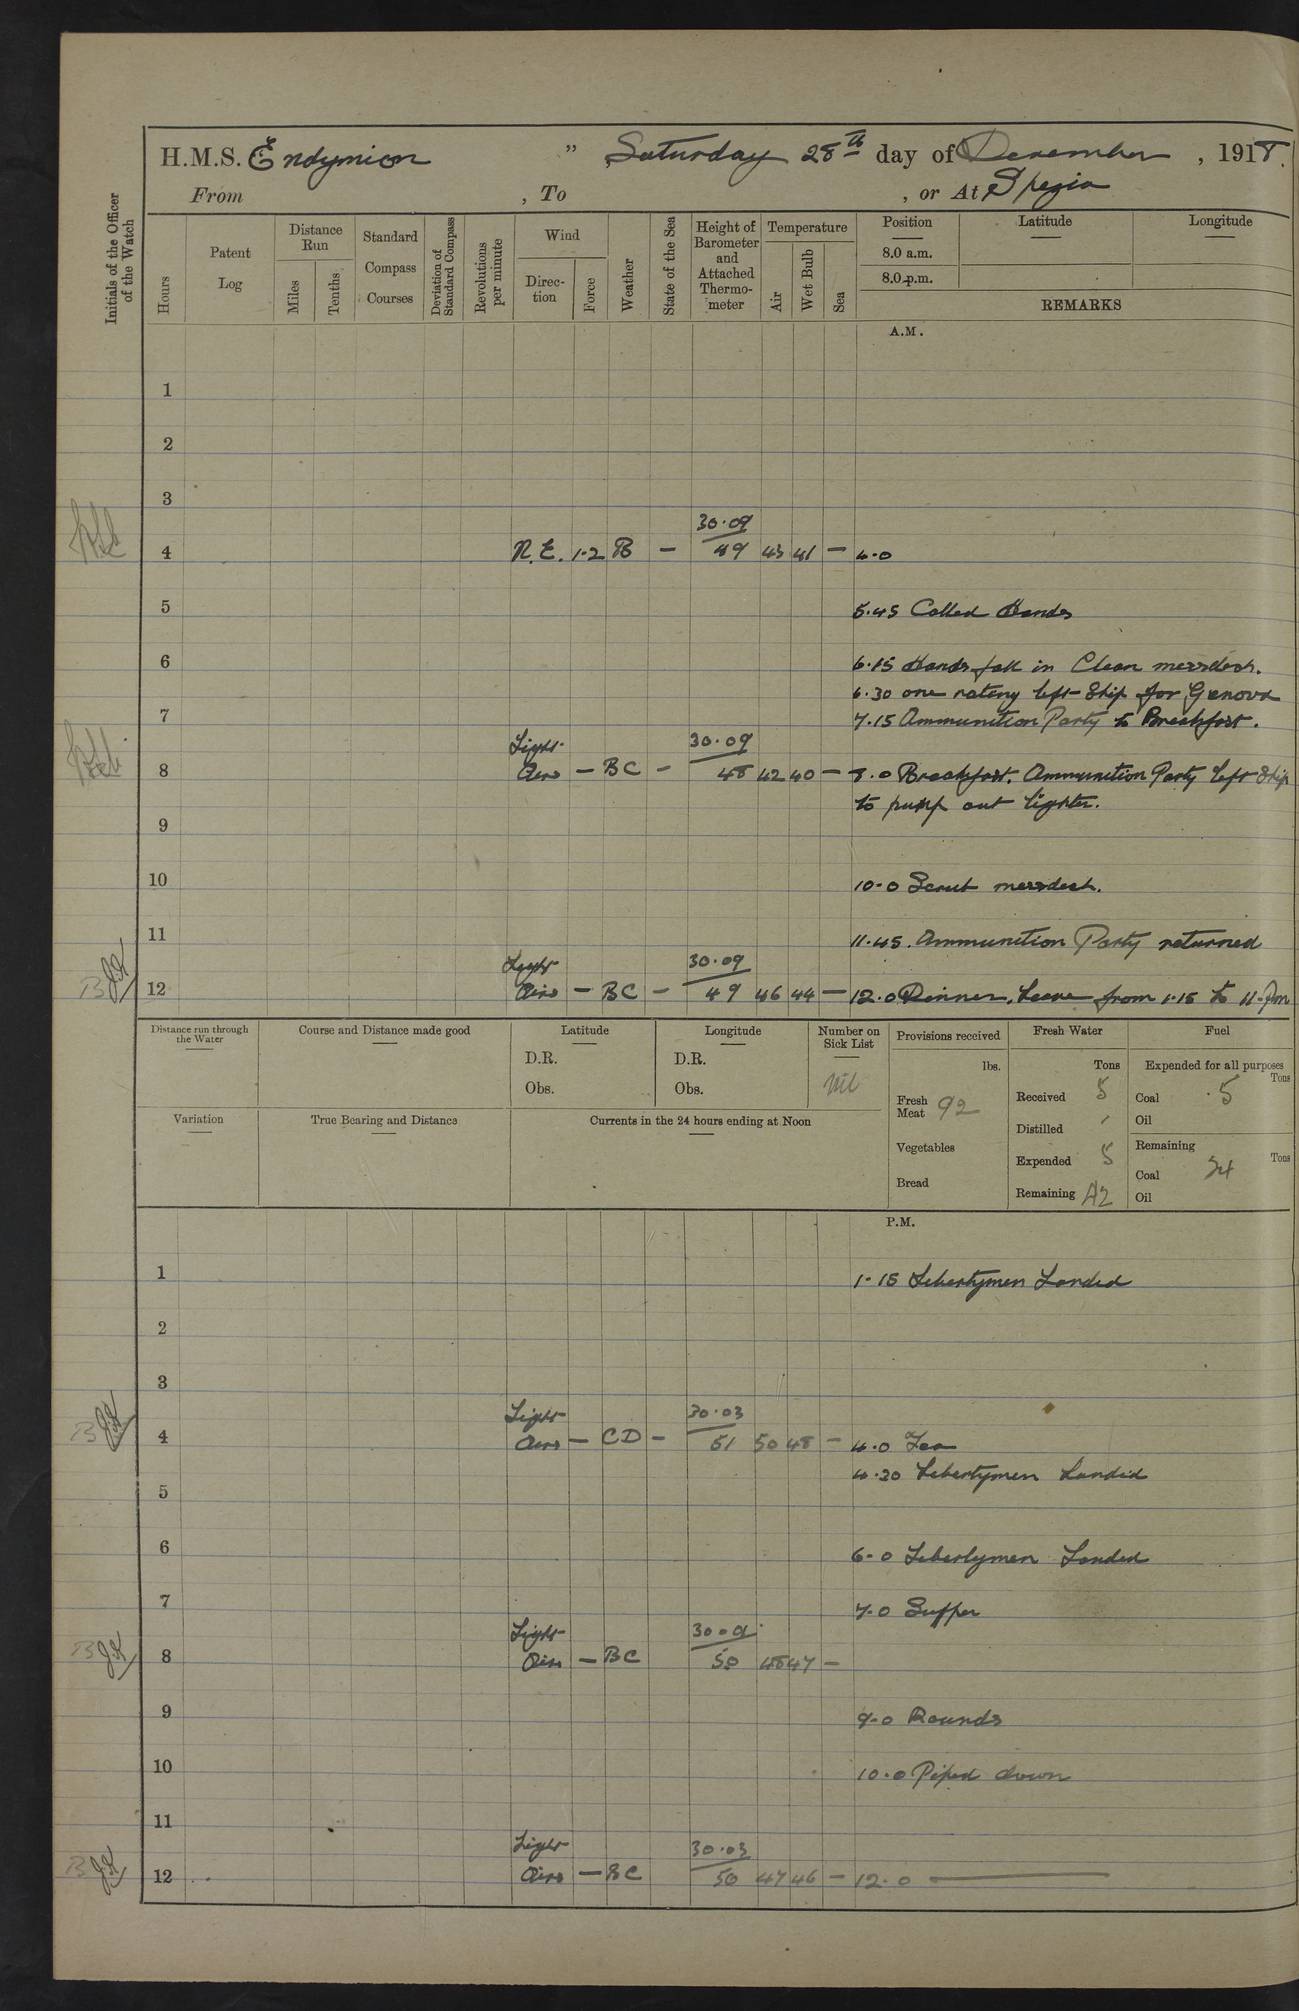 H.M.S. Endymion " Saturday 28th day of December , 1918.
From , To , or At Spezia
Initials of the Officer of the Watch
Hours
Patent Log
Distance Run
Miles
Tenths
Standard Compass Courses
Deviation of Standard Compass
Revolutions per minute
Wind
Direction
Force
Weather
State of the Sea
Height of Barometer and Attached Thermometer
Temperature
Air
Wet Bulb
Sea
Position
8.0 a.m.
8.0 p.m.
Latitude
Longitude
REMARKS
A.M.
1
2
3
30.09
4 N.E. 1-2 B — 49 43 41 — 4.0
5 5.45 Called Hands
6 6.15 Hands fall in Clean messdeck.
6.30 one rating left Ship for Genova
7 7.15 Ammunition Party to Breakfast.
Light 30.09
8 Airs — BC — 48 42 40 — 8.0 Breakfast. Ammunition Party left Ship
to pump out lighter.
9
10 10-0 Scrub messdeck.
11 11.45. Ammunition Party returned
Light 30.09
12 Airs — BC — 49 46 44 — 12.0 Dinner. Leave from 1.15 to 11.pm
Distance run through the Water
Course and Distance made good
Latitude
D.R.
Obs.
Longitude
D.R.
Obs.
Number on Sick List
Nil
Provisions received
lbs.
Fresh Meat 92
Vegetables
Bread
Fresh Water
Tons
Received 5
Distilled
Expended 5
Remaining 42
Fuel
Expended for all purposes
Tons
Coal .5
Oil
Remaining
Tons
Coal 34
Oil
Variation
True Bearing and Distance
Currents in the 24 hours ending at Noon
P.M.
1 1-15 Libertymen Landed
2
3
Light 30.03
4 Airs — CD — 51 50 48 — 4.0 Tea
4.30 Libertymen Landed
5
6 6-0 Libertymen Landed
7 7.0 Supper
Light
8 Airs — BC 50 48 47 —
9 9-0 Rounds
10 10.0 Piped down
11
Light 30.03
12 Airs — BC 50 47 46 — 12.0 —